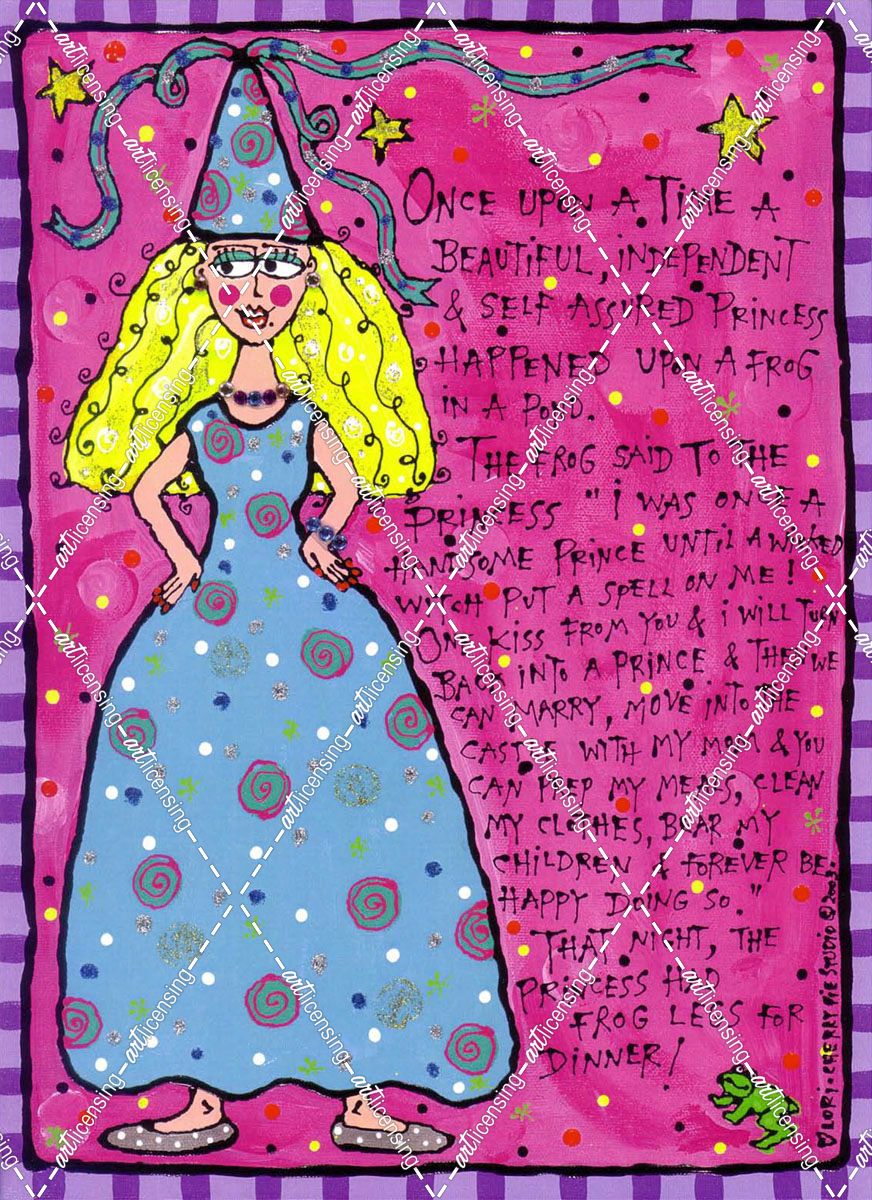 ONCE UPON A TIME A
BEAUTIFUL, INDEPENDENT
& SELF ASSURED PRINCESS
HAPPENED UPON A FROG
IN A POND.
THE FROG SAID TO THE
PRINCESS "I WAS ONCE A
HANDSOME PRINCE UNTIL A WICKED
WITCH PUT A SPELL ON ME!
ONE KISS FROM YOU & I WILL TURN
BACK INTO A PRINCE & THEN WE
CAN MARRY, MOVE INTO THE
CASTLE WITH MY MOM & YOU
CAN PREP MY MEALS, CLEAN
MY CLOTHES, BEAR MY
CHILDREN & FOREVER BE
HAPPY DOING SO."
THAT NIGHT, THE
PRINCESS HAD
FROG LEGS FOR
DINNER!
LORI • CHERRY PIE STUDIO © 2003.
artlicensing